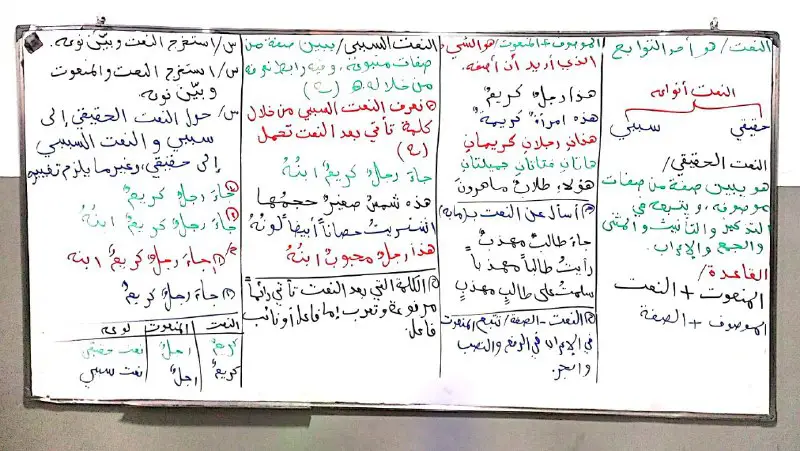 النعت / هو أحد التوابع
النعت أنواعه
حقيقي
سببي
النعت الحقيقي /
هو يبين صفة من صفات
موصوفه، ويتبعه في
التذكير والتأنيث والمثنى
والجمع والإعراب
القاعدة /
المنعوت + النعت
الموصوف + الصفة
الموصوف + المنعوت / هو الشيء
الذي أريد أن أصفه.
هذا رجلٌ كريمٌ
هذه امرأةٌ كريمةٌ
هذان رجلان كريمان
هاتان فتاتان جميلتان
هؤلاء طلابٌ ماهرون
أسأل عن النعت بـ(ما به)
جاء طالبٌ مهذبٌ
رأيتُ طالباً مهذباً
سلمتُ على طالبٍ مهذبٍ
النعت - الصفة / تتبع المنعوت
في الإعراب في الرفع والنصب
والجر.
النعت السببي / يبين صفة من
صفات متبوعه، وفيه رابط نوعه
من خلاله (ـه)
نعرف النعت السببي من خلال
كلمة تأتي بعد النعت تحمل
(ـه)
جاءَ رجلٌ كريمٌ ابنُهُ
هذه شمسٌ صغيرٌ حجمُها
اشتريتُ حصاناً أبيضاً لونُهُ
هذا رجلٌ محبوبٌ ابنُهُ
الكلمة التي بعد النعت تأتي دائماً
مرفوعة وتعرب إما فاعل أو نائب
فاعل.
س/ استخرج النعت وبيّن نوعه.
س/ استخرج النعت والمنعوت
وبيّن نوعه
س/ حول النعت الحقيقي إلى
سببي والنعت السببي
إلى حقيقي، وغير ما يلزم تغييره
(١) جاءَ رجلٌ كريمٌ
(٢) جاءَ رجلٌ كريمٌ ابنُهُ
ج/ (١) جاءَ رجلٌ كريمٌ ابنه
(٢) جاءَ رجلٌ كريمٌ
النعت المنعوت نوعه
كريمٌ رجلٌ نعت حقيقي
كريمٌ رجلٌ نعت سببي